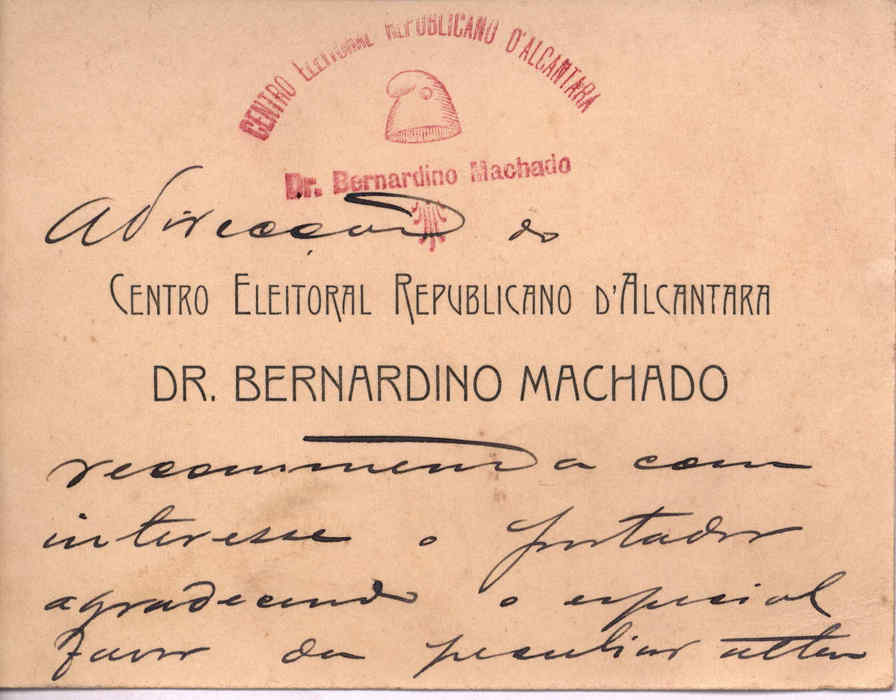 CENTRO ELEITORAL REPUBLICANO D'ALCANTARA
Dr. Bernardino Machado
A direcção do
CENTRO ELEITORAL REPUBLICANO D'ALCANTARA
DR. BERNARDINO MACHADO
recommenda com
interesse o portador
agradecendo o especial
favor da peculiar atten